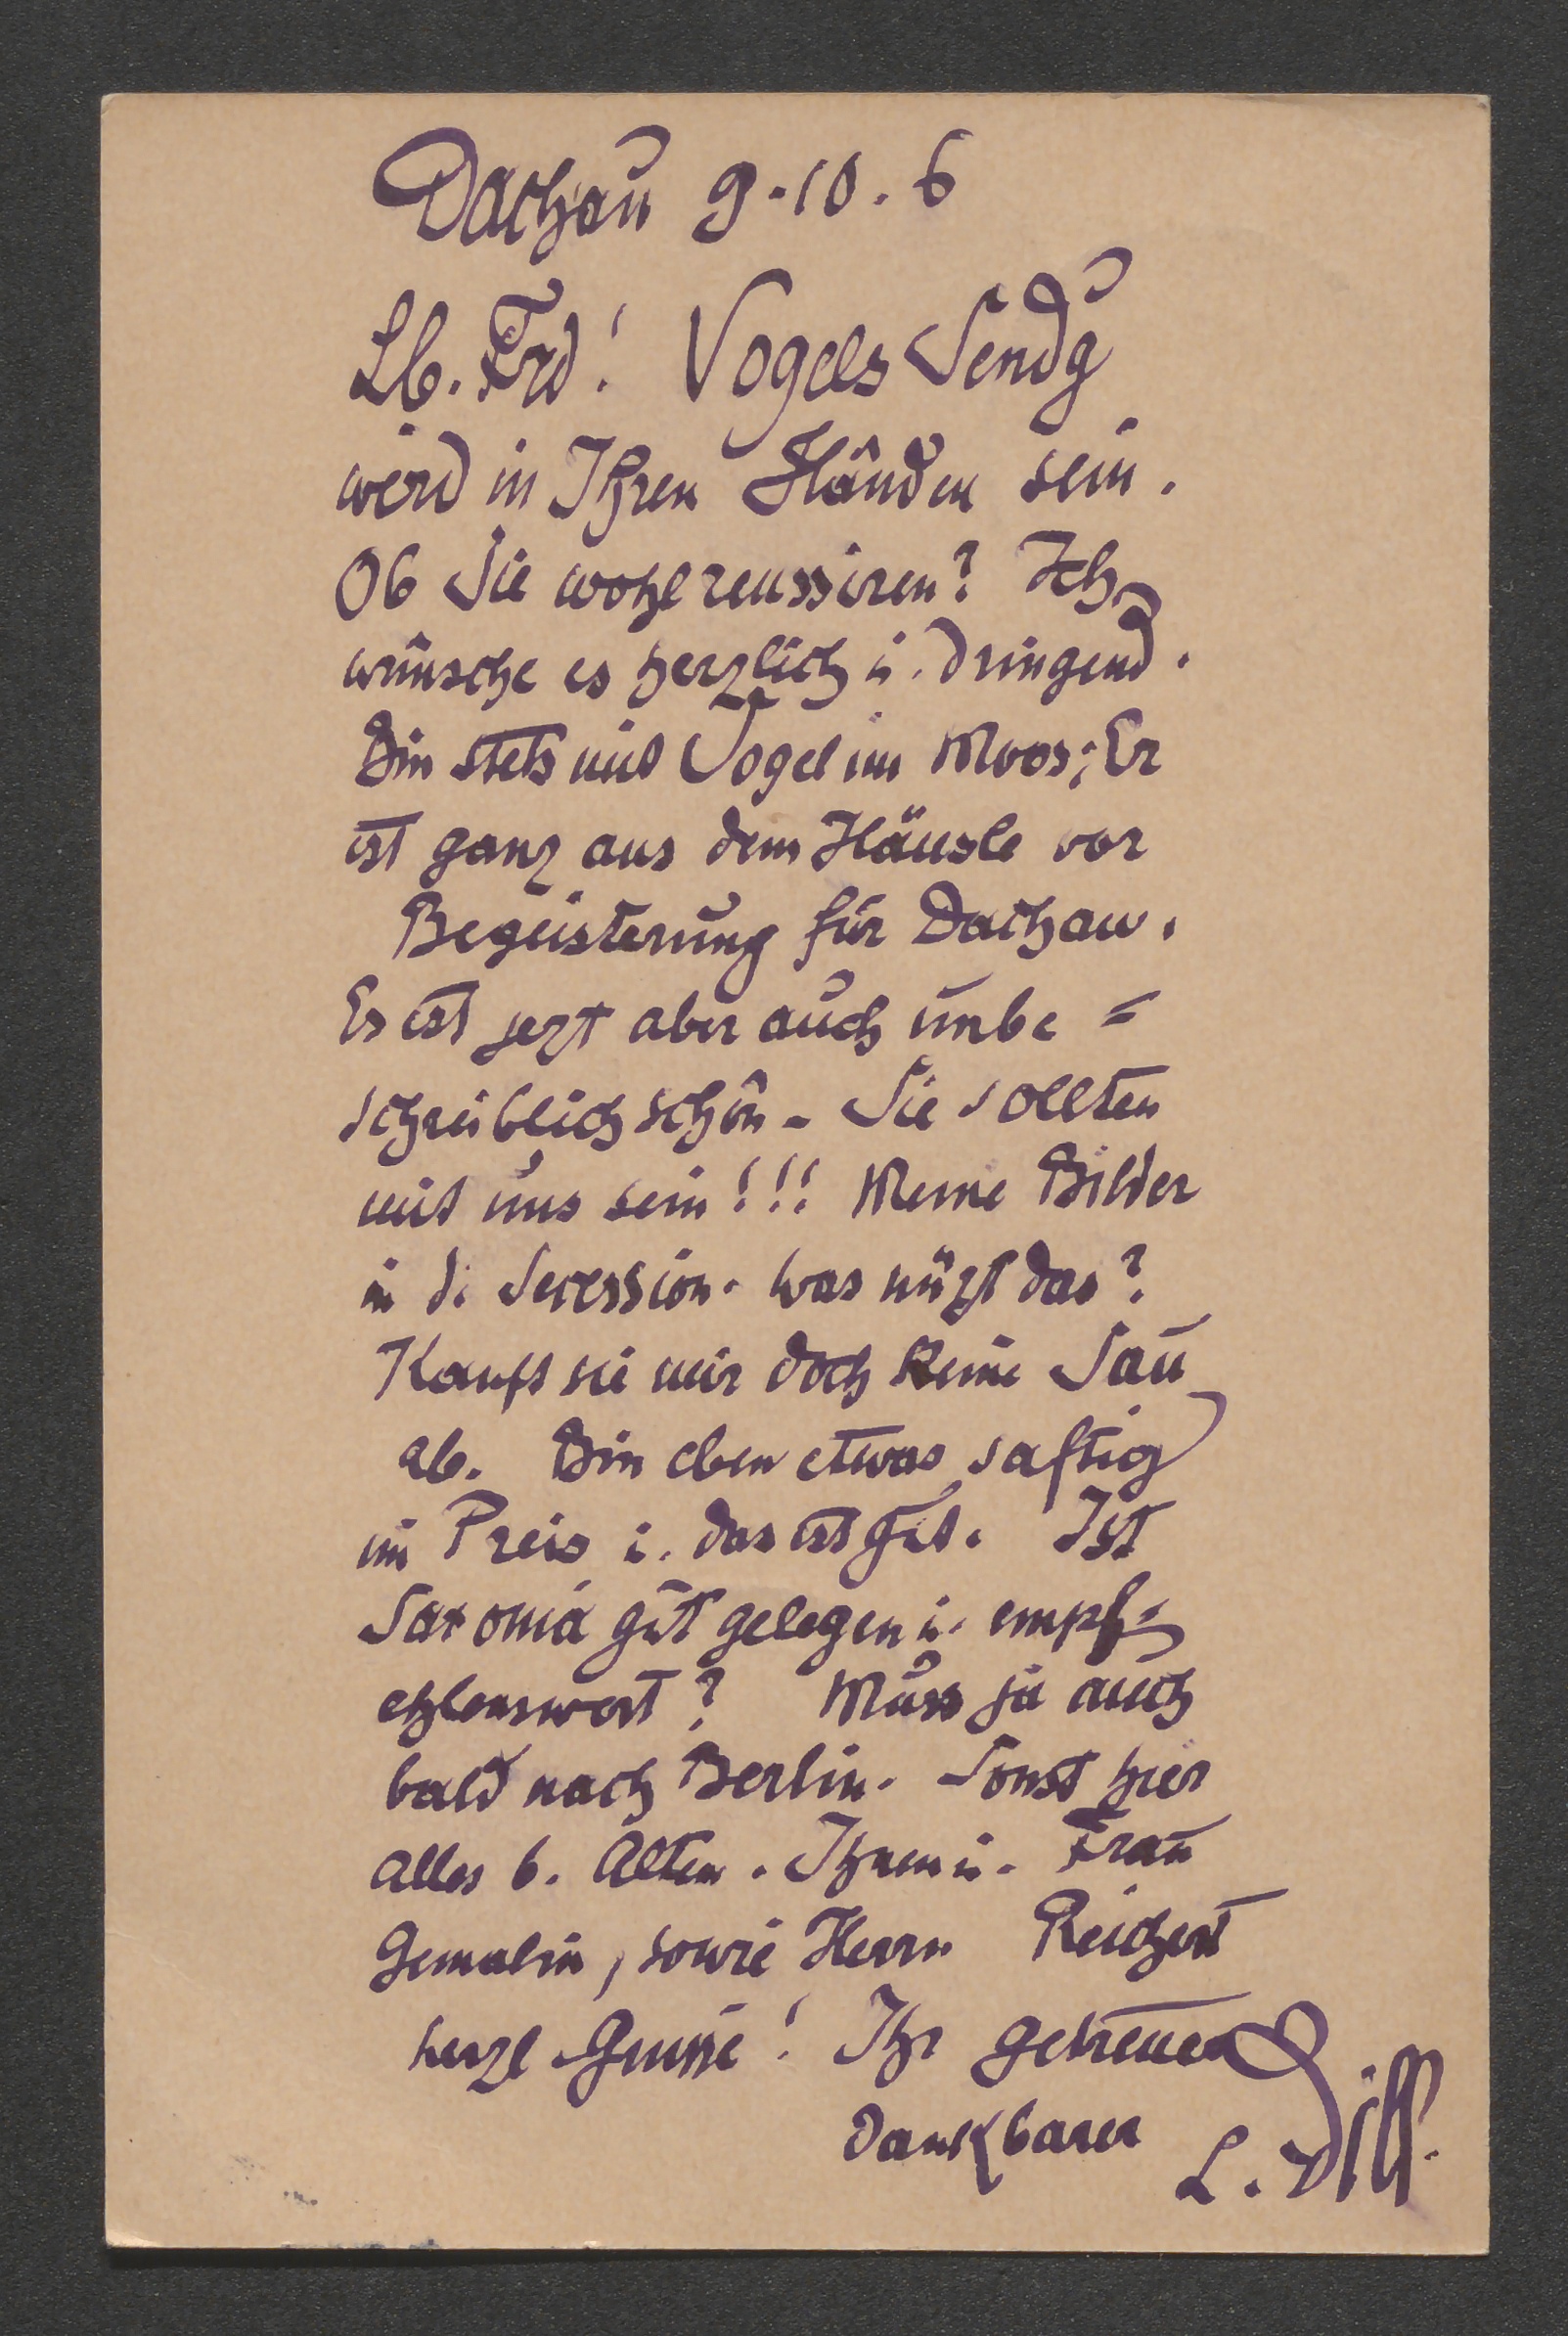 Dachau 9.10.6
Lb. Frd! Vogels Sendg
wird in Ihren Händen sein.
Ob Sie wohl reussiren? Ich
wünsche es herzlich u. dringend.
Bin stets mit Vogel im Moos; Er
ist ganz aus dem Häusle vor
Begeisterung für Dachau.
Es ist jezt aber auch unbe=
schreiblich schön - Sie sollten
mit uns sein!!! Meine Bilder
in d. Secession. was nüzt das?
Kauft sie mir doch keine Sau
ab. Bin eben etwas saftig
im Preis u. das ist gut. Ist
Saxonia gut gelegen u. empf=
ehlenswert? Muss ja auch
bald nach Berlin. Sonst hier
alles b. Alten. Ihnen u. Frau
Gemalin, sowie Herrn Reichert
herzl Grusse! Ihr getreuer
dankbarer L. Dill.